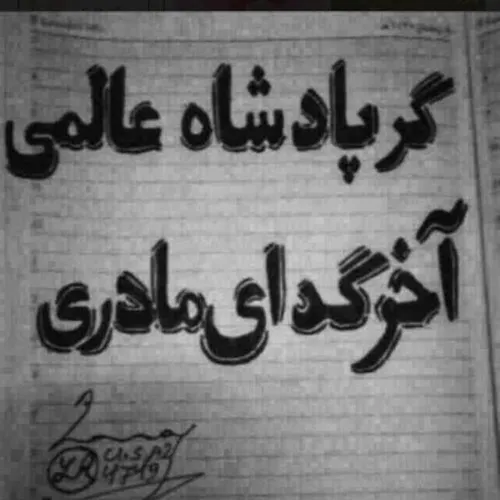 گر پادشاه عالمی
آخر گدای مادری